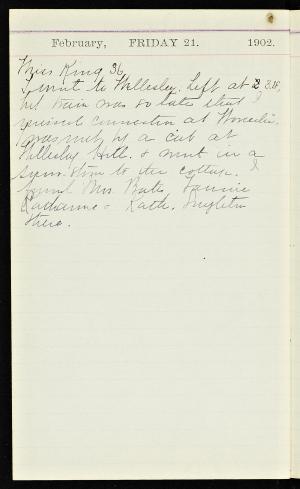 February, FRIDAY 21. 1902.
Miss King 36
I went to Wellesley. Left at 2 3.15,
but train was so late that I
missed connection at Worcester.
I was met by a cab at
Wellesley Hills. & went in a
snow storm to the cottage. I
found Mrs. Bates, Jannie
Katharine & Kath. Singleton
there.